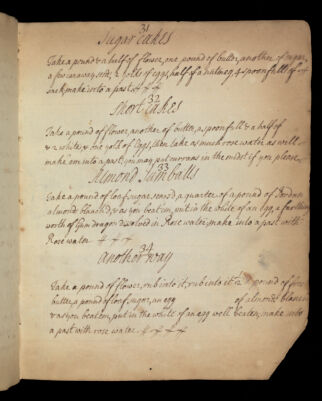 31
Sugar Cakes
Take a pound & a half of flower, one pound of butter, another of sugar,
a few caraway seeds, 2 yolks of eggs, half of a nutmeg, 4 spoonfulls of
sack make into a past
32
Short Cakes
Take a pound of flower, another of butter, a spoonfull & a half of
& 2 whites & one yolk of Eggs, then take as much rose water as will
make em into a past, you may put currans in the midst if you please
33
Almond Jumballs
Take a pound of loaf sugar, searc'd, a quarter of a pound of Jordan
almonds blanch'd, & as you beat em, put in the white of an Egg, a farthing
worth of Gum dragon dissolved in Rose water, make into a past with
Rose water
34
another way
Take a pound of flower, rub into it, rub into it a pound of fine
butter, a pound of loaf sugar, an egg of almonds blanc
& as you beat em, put in the white of an egg well beaten, make into
a past with rose water